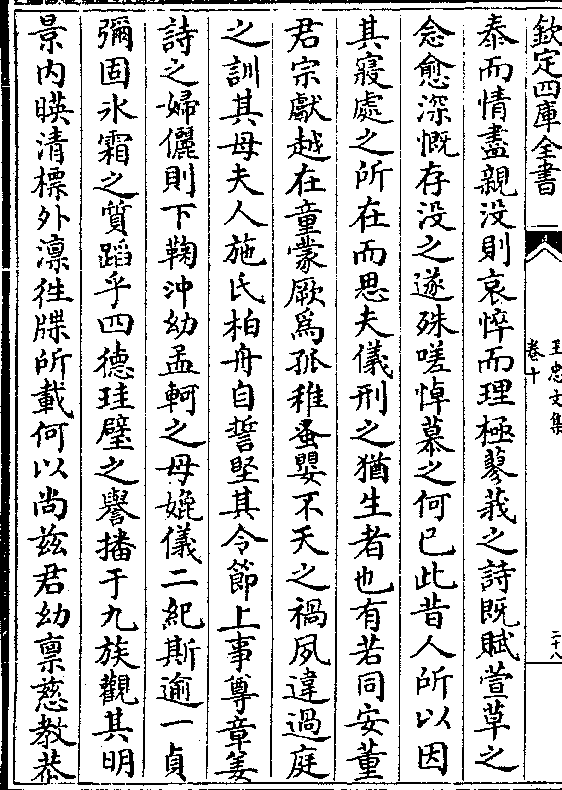 欽定四庫全書
王忠文集
卷十
二十八
泰而情盡親没則哀悴而理極蓼莪之詩既賦萱草之
念愈深慨存没之遂殊嗟悼慕之何已此昔人所以因
其寢處之所在而思夫儀刑之猶生者也有若同安董
君宗獻越在童蒙厥為孤稚蚤嬰不天之禍夙違過庭
之訓其母夫人施氏柏舟自誓堅其令節上事尊章姜
詩之婦儷則下鞠沖幼孟軻之母娩儀二紀斯逾一貞
彌固氷霜之質蹈乎四德珪璧之譽播于九族觀其明
景内暎清標外凛徃牒所載何以尚兹君幼禀慈教恭